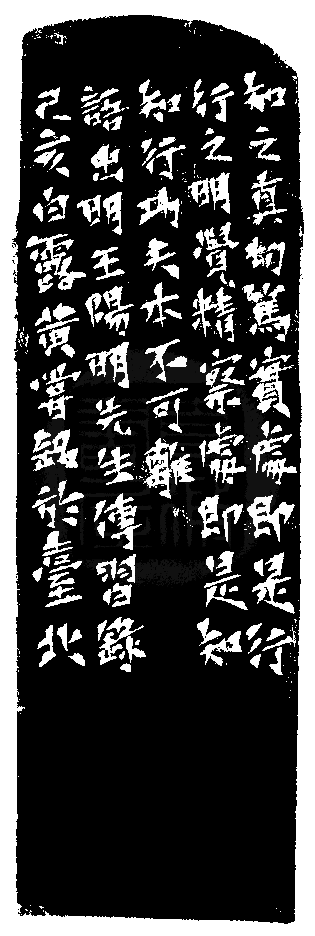 知之真切篤實處即是行
行之明覺精察處即是知
知行功夫本不可離
語出明王陽明先生傳習錄
己亥白露黃嘗銘於臺北